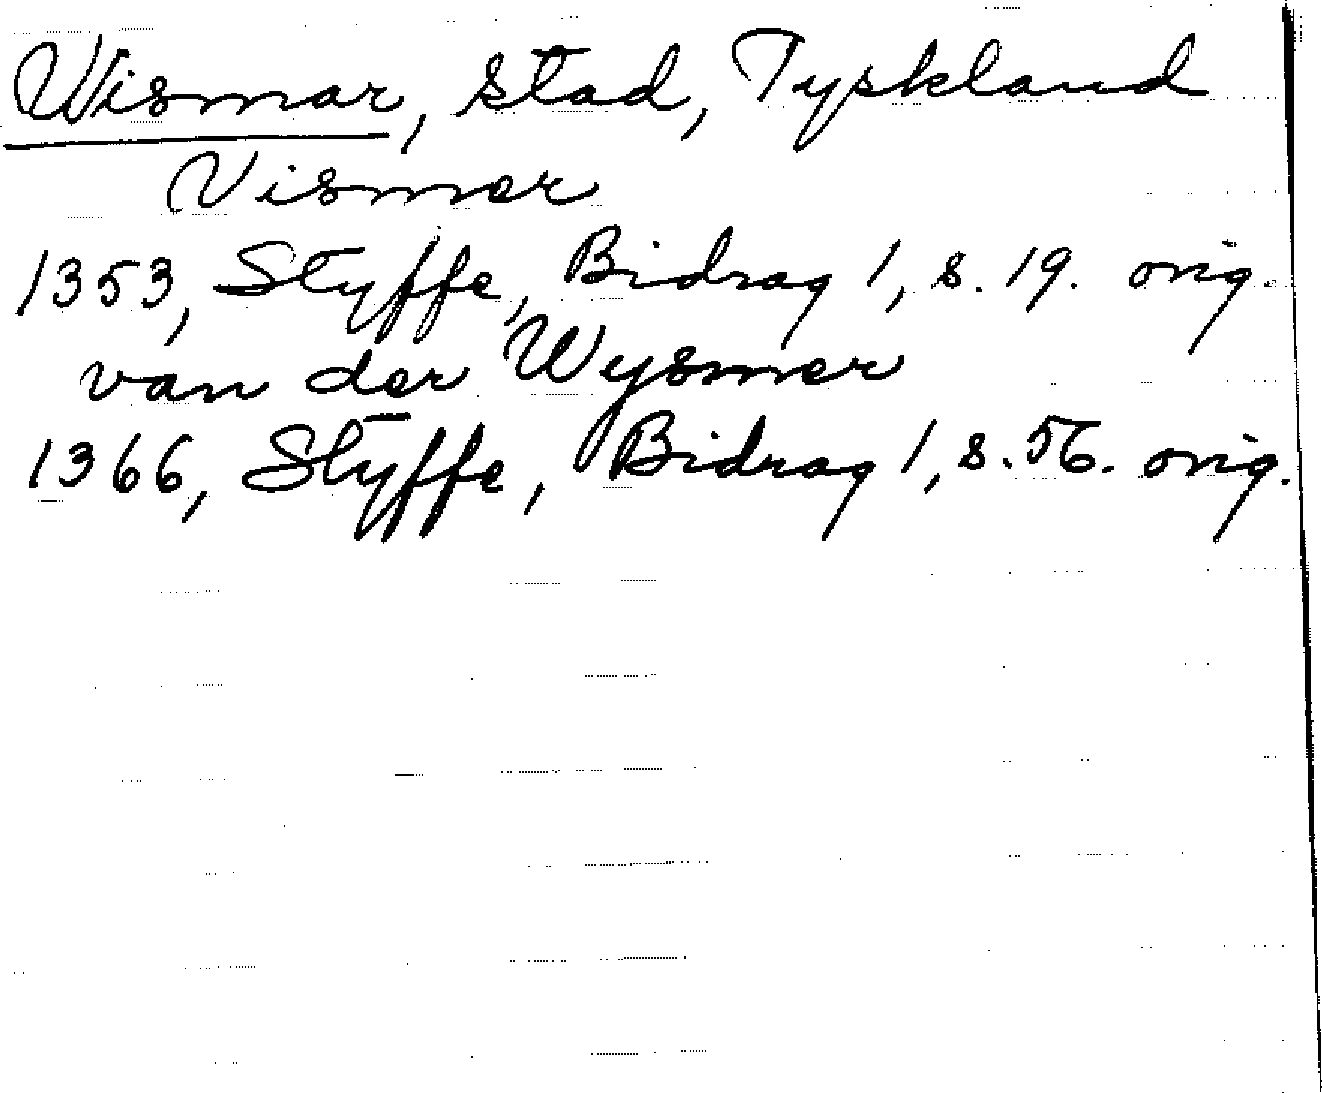 Wismar, stad, Tyskland
Vismer
1353, Styffe, Bidrag 1, s. 19. orig.
van der Wysmer
1366, Styffe, Bidrag 1, s. 56. orig.